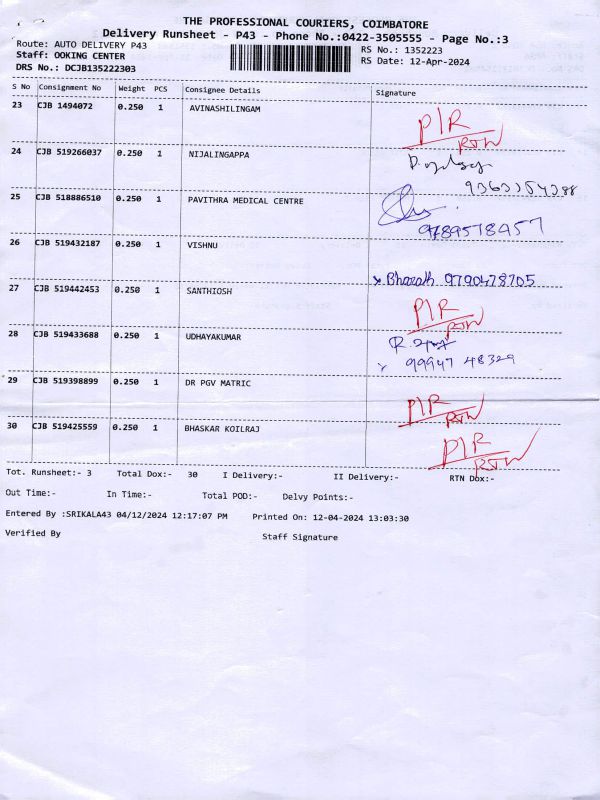 THE PROFESSIONAL COURIERS, COIMBATORE
Delivery Runsheet - P43 - Phone No.:0422-3505555 - Page No.:3
Route: AUTO DELIVERY P43 RS No.: 1352223
Staff: OOKING CENTER RS Date: 12-Apr-2024
DRS No.: DCJB135222303
S No Consignment No Weight PCS Consignee Details Signature
23 CJB 1494072 0.250 1 AVINASHILINGAM P/R RTN
24 CJB 519266037 0.250 1 NIJALINGAPPA
25 CJB 518886510 0.250 1 PAVITHRA MEDICAL CENTRE 9789578457
26 CJB 519432187 0.250 1 VISHNU Bharath 9790478705
27 CJB 519442453 0.250 1 SANTHIOSH P/R RTN
28 CJB 519433688 0.250 1 UDHAYAKUMAR 99947 48329
29 CJB 519398899 0.250 1 DR PGV MATRIC P/R RTN
30 CJB 519425559 0.250 1 BHASKAR KOILRAJ P/R RTN
Tot. Runsheet:- 3 Total Dox:- 30 I Delivery:- II Delivery:- RTN Dox:-
Out Time:- In Time:- Total POD:- Delvy Points:-
Entered By :SRIKALA43 04/12/2024 12:17:07 PM Printed On: 12-04-2024 13:03:30
Verified By Staff Signature